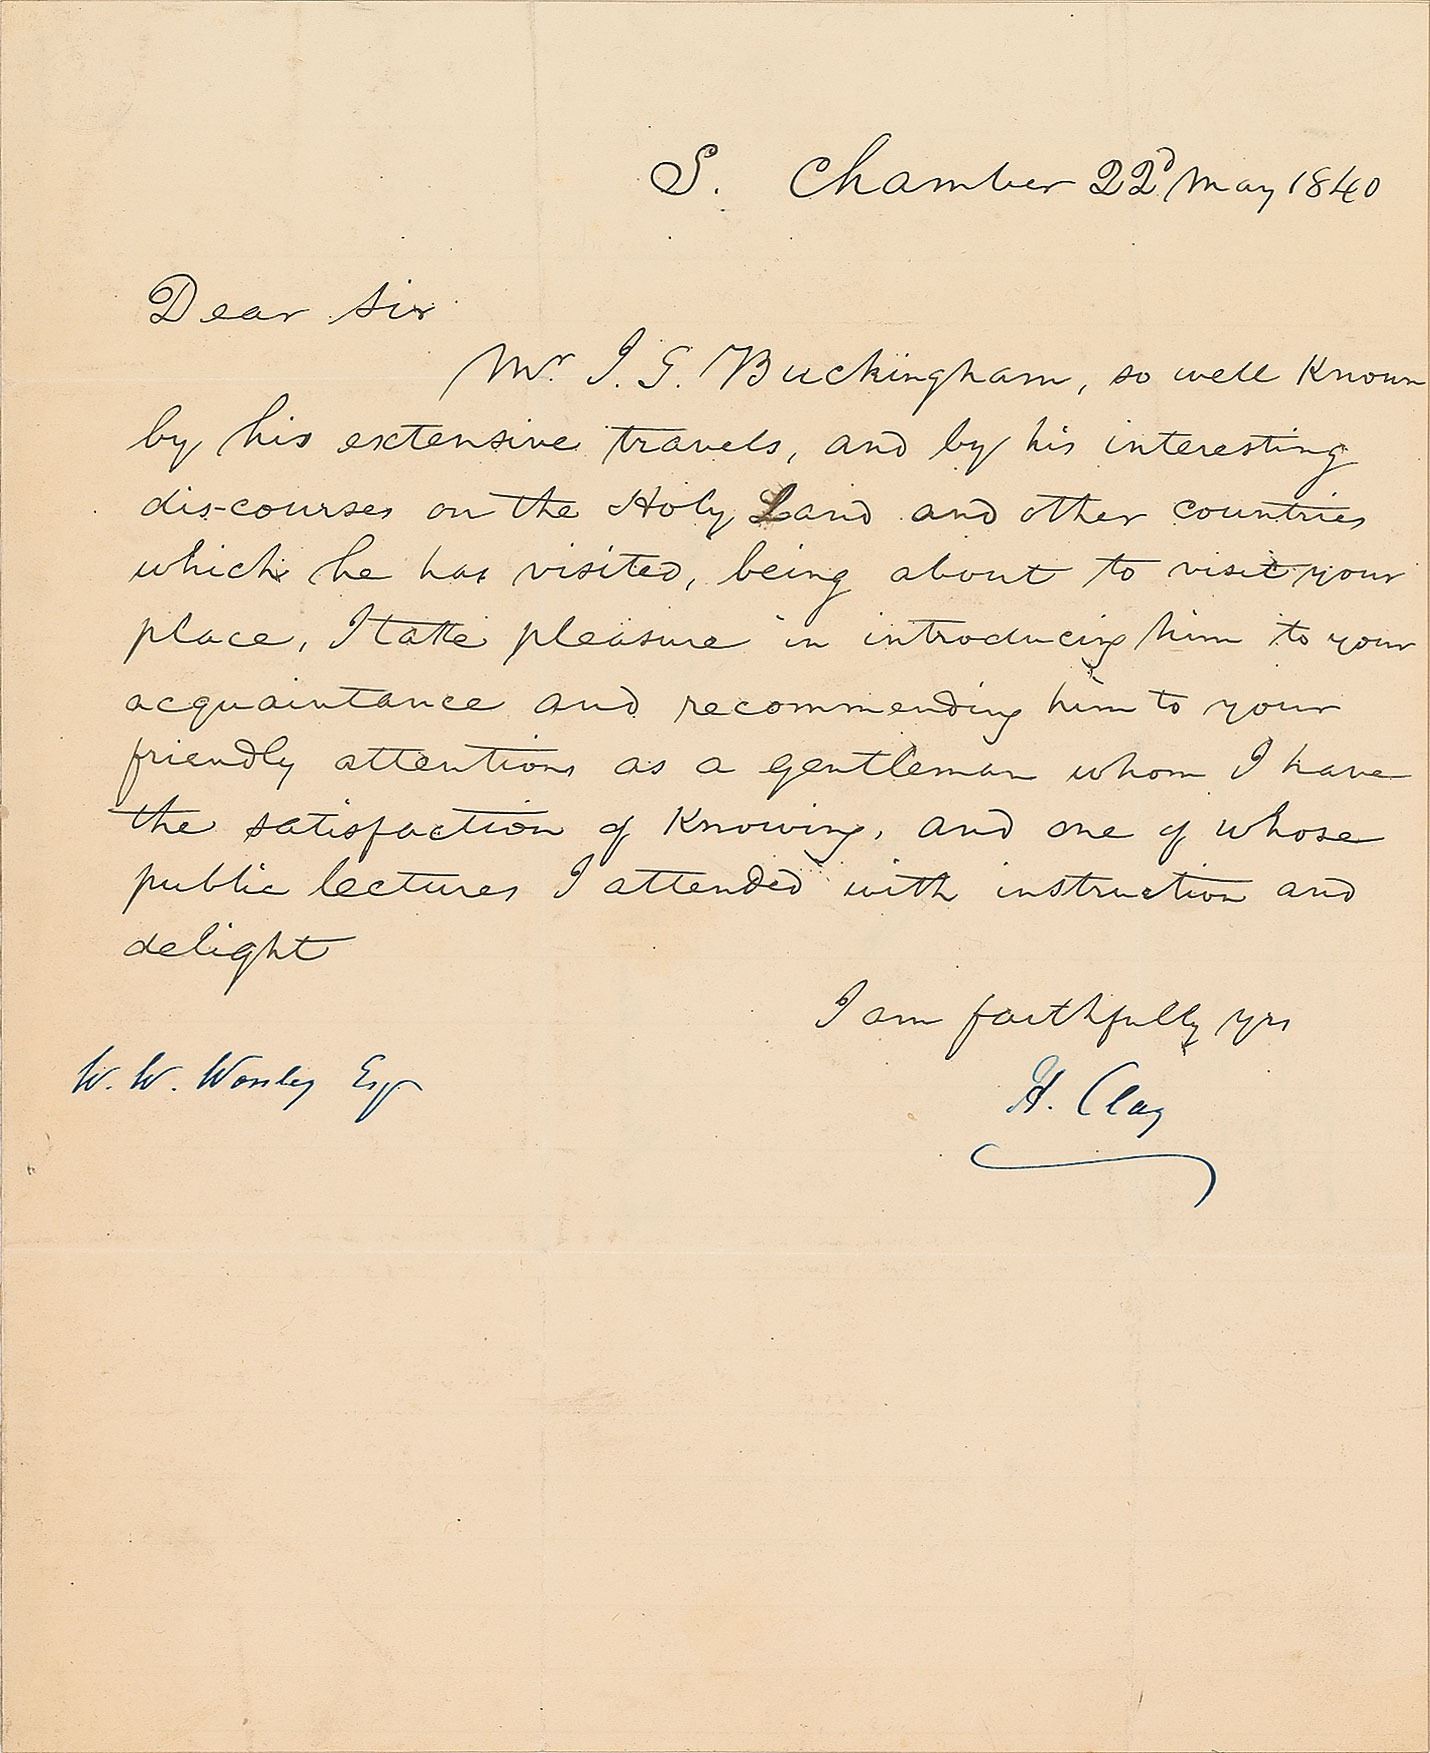 S. Chamber 22d May 1840
Dear Sir
Mr. J. S. Buckingham, so well Known
by his extensive travels, and by his interesting
dis-courses on the Holy Land and other countries
which he has visited, being about to visit your
place, I take pleasure in introducing him to your
acquaintance and recommending him to your
friendly attentions as a gentleman whom I have
the satisfaction of Knowing, and one of whose
public lectures I attended with instruction and
delight
I am faithfully yrs
W. W. Worsley Esqr
H. Clay